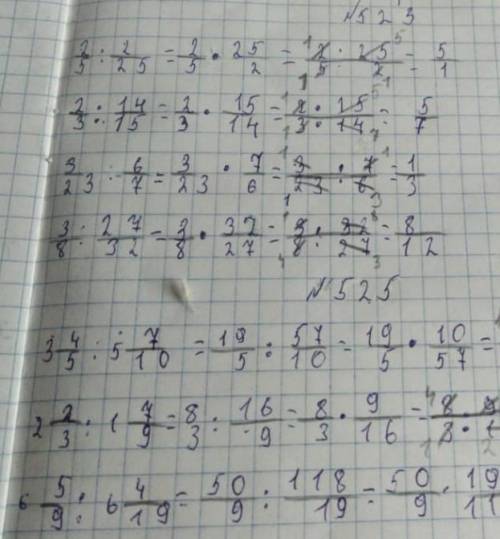 №523
2/5 : 2/25 = 2/5 · 25/2 = 2 · 25/5 · 2 = 5/1
2/3 : 14/15 = 2/3 · 15/14 = 2 · 15/3 · 14 = 5/7
3/23 : 6/7 = 3/23 · 7/6 = 3 · 7/23 · 6 = 1/3
3/8 : 27/32 = 3/8 · 32/27 = 3 · 32/8 · 27 = 8/12
№525
3 4/5 : 5 7/10 = 19/5 : 57/10 = 19/5 · 10/57 =
2 2/3 : 1 7/9 = 8/3 : 16/9 = 8/3 · 9/16 =
6 5/9 : 6 4/19 = 50/9 : 118/19 = 50/9 · 19/11